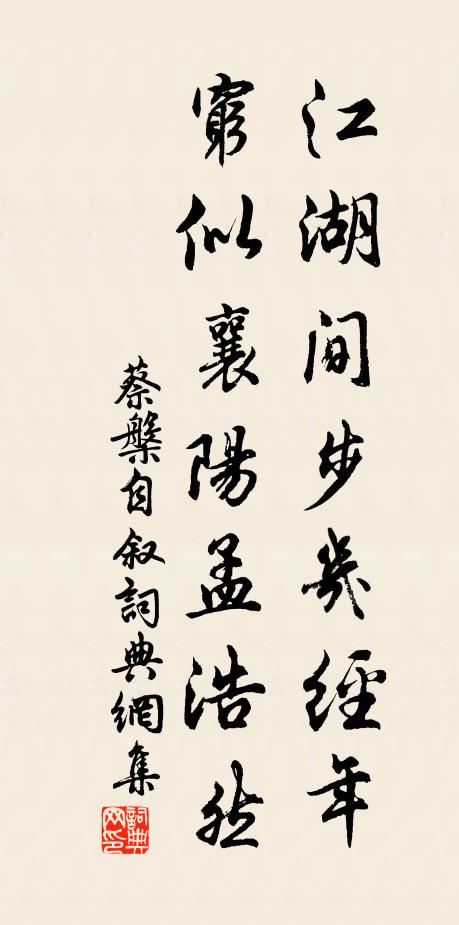 江湖閒步幾經年
窮似襄陽孟浩然
蔡槃自叙詞典網集
詞典網印